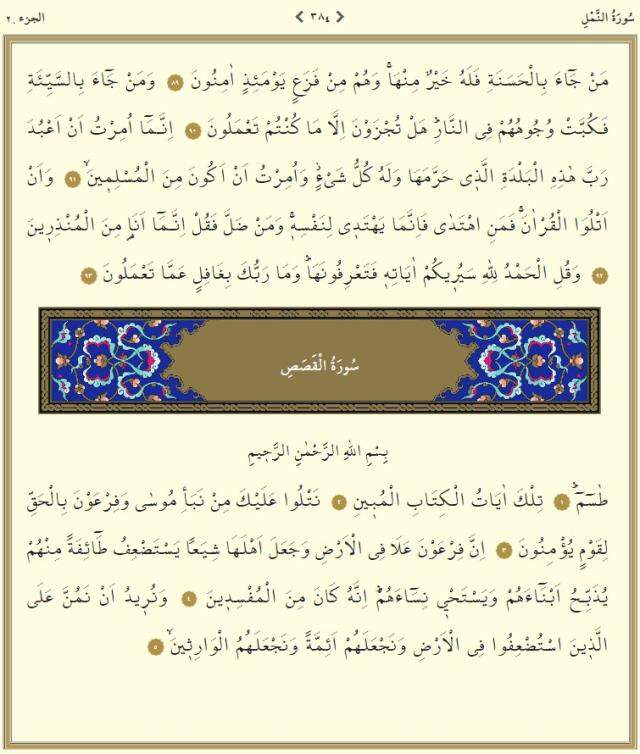 سُورَةُ النَّمْلِ ٣٨٤ الجزء ٢٠
مَنْ جَٓاءَ بِالْحَسَنَةِ فَلَهُ خَيْرٌ مِنْهَاۚ وَهُمْ مِنْ فَزَعٍ يَوْمَئِذٍ اٰمِنُونَ ٨٩ وَمَنْ جَٓاءَ بِالسَّيِّئَةِ
فَكُبَّتْ وُجُوهُهُمْ فِى النَّارِۜ هَلْ تُجْزَوْنَ اِلَّا مَا كُنْتُمْ تَعْمَلُونَ ٩٠ اِنَّـمَٓا اُمِرْتُ اَنْ اَعْبُدَ
رَبَّ هٰذِهِ الْبَلْدَةِ الَّذ۪ى حَرَّمَهَا وَلَهُ كُلُّ شَىْءٍۘ وَاُمِرْتُ اَنْ اَكُونَ مِنَ الْمُسْلِم۪ينَۙ ٩١ وَاَنْ
اَتْلُوَا الْقُرْاٰنَۚ فَمَنِ اهْتَدٰى فَاِنَّمَا يَهْتَد۪ى لِنَفْسِه۪ۚ وَمَنْ ضَلَّ فَقُلْ اِنَّـمَٓا اَنَا۬ مِنَ الْمُنْذِر۪ينَ
٩٢ وَقُلِ الْحَمْدُ لِلّٰهِ سَيُر۪يكُمْ اٰيَاتِه۪ فَتَعْرِفُونَهَاۜ وَمَا رَبُّكَ بِغَافِلٍ عَمَّا تَعْمَلُونَ ٩٣
سُورَةُ الْقَصَصِ
بِسْمِ اللّٰهِ الرَّحْمٰنِ الرَّح۪يمِ
طٰسٓمٓۜ ١ تِلْكَ اٰيَاتُ الْكِتَابِ الْمُب۪ينِ ٢ نَتْلُوا عَلَيْكَ مِنْ نَبَاِ مُوسٰى وَفِرْعَوْنَ بِالْحَقِّ
لِقَوْمٍ يُؤْمِنُونَ ٣ اِنَّ فِرْعَوْنَ عَلَا فِى الْاَرْضِ وَجَعَلَ اَهْلَهَا شِيَعًا يَسْتَضْعِفُ طَٓائِفَةً مِنْهُمْ
يُذَبِّـحُ اَبْنَٓاءَهُمْ وَيَسْتَحْي۪ نِسَٓاءَهُمْۜ اِنَّهُ كَانَ مِنَ الْمُفْسِد۪ينَ ٤ وَنُر۪يدُ اَنْ نَمُنَّ عَلَى
الَّذ۪ينَ اسْتُضْعِفُوا فِى الْاَرْضِ وَنَجْعَلَهُمْ اَئِمَّةً وَنَجْعَلَهُمُ الْوَارِث۪ينَۙ ٥